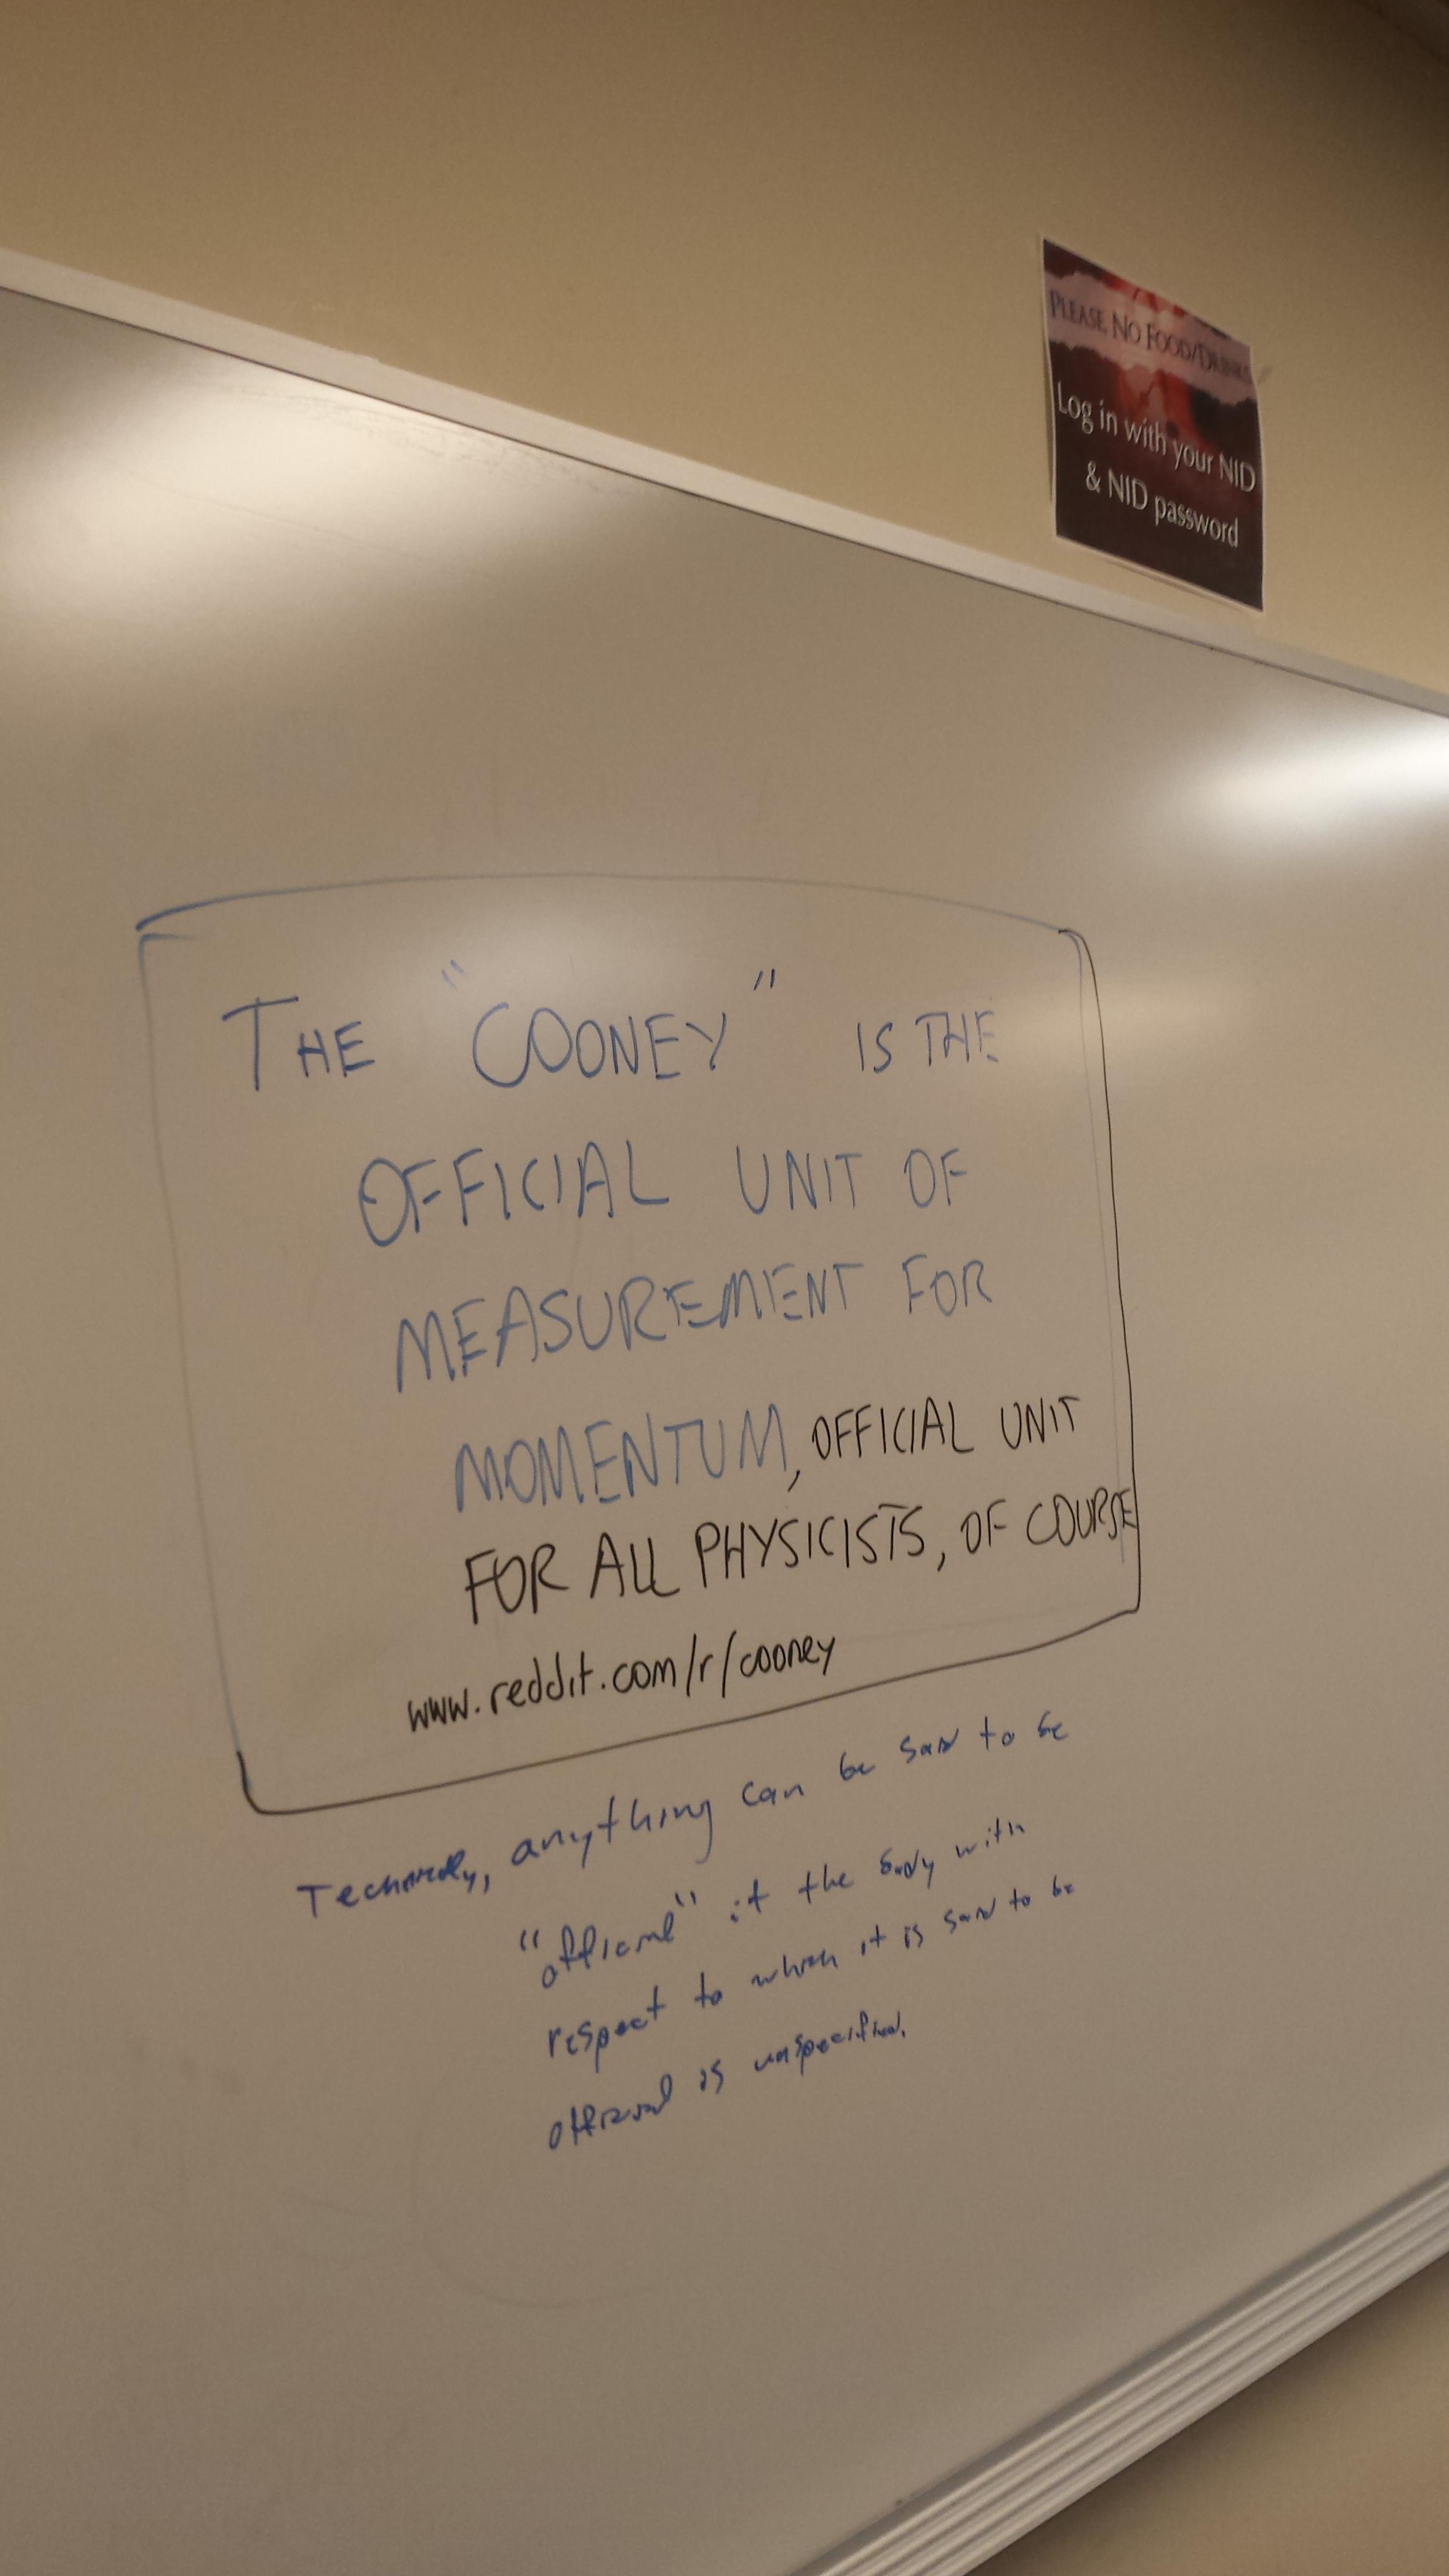 PLEASE, NO FOOD/DRINKS
Log in with your NID
& NID password
THE "COONEY" IS THE
OFFICIAL UNIT OF
MEASUREMENT FOR
MOMENTUM, OFFICIAL UNIT
FOR ALL PHYSICISTS, OF COURSE
www.reddit.com/r/cooney
Technically, anything can be said to be
"official" if the body with
respect to which it is said to be
official is unspecified.